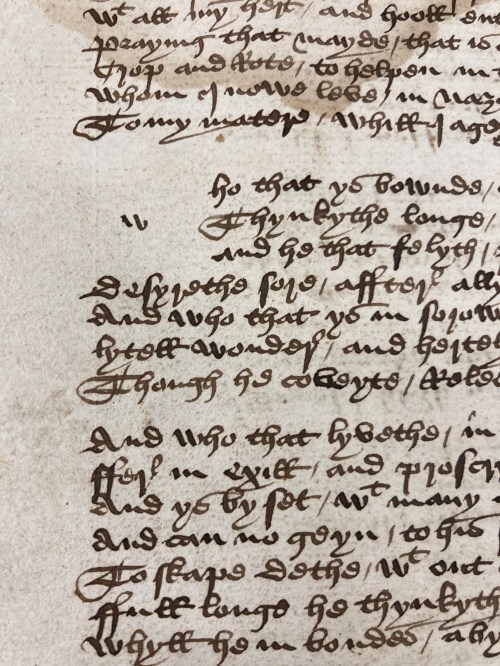 wt all my hert, and hooll
praying that mayde, that is
Crop and Rote, to helpen in
whom I nowe leve, in
To my matere, whill I
ho that ys bownde,
w Thynkythe longe,
and he that felyth,
desyrethe sore, affter ally
And who that ys in sorow
lytell wonder, and hertel
Though he coveyte, Relee
And who that lyvethe, in
ffer in exill, and proscr
And ys by set, wt many
And can no geyn, to his
To skape dethe, wt out
ffull longe he thynkyth
Whyll he in bondes, aby